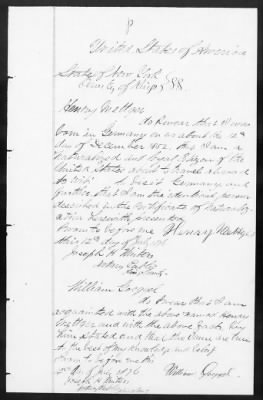 United States of America
State of New York
County of Kings } SS.
Henry Mettger
do swear that I was
born in Germany on or about the 12th
day of December 1852, that I am a
naturalized and loyal Citizen of the
United States about to travel abroad
to visit Germany and
further that I am the identical person
described in the Certificate of Naturaliz
ation herewith presented
Sworn to before me Henry Mettger
this 12th day of July 1876
Joseph H.
Notary Public
Kings County
William
do swear that I am
acquainted with the above named Henry
Mettger and with the above facts by
him stated and that the same are true
to the best of my knowledge and belief
Sworn to before me this
day of July 1876 William
Joseph H.
Notary Public Kings County